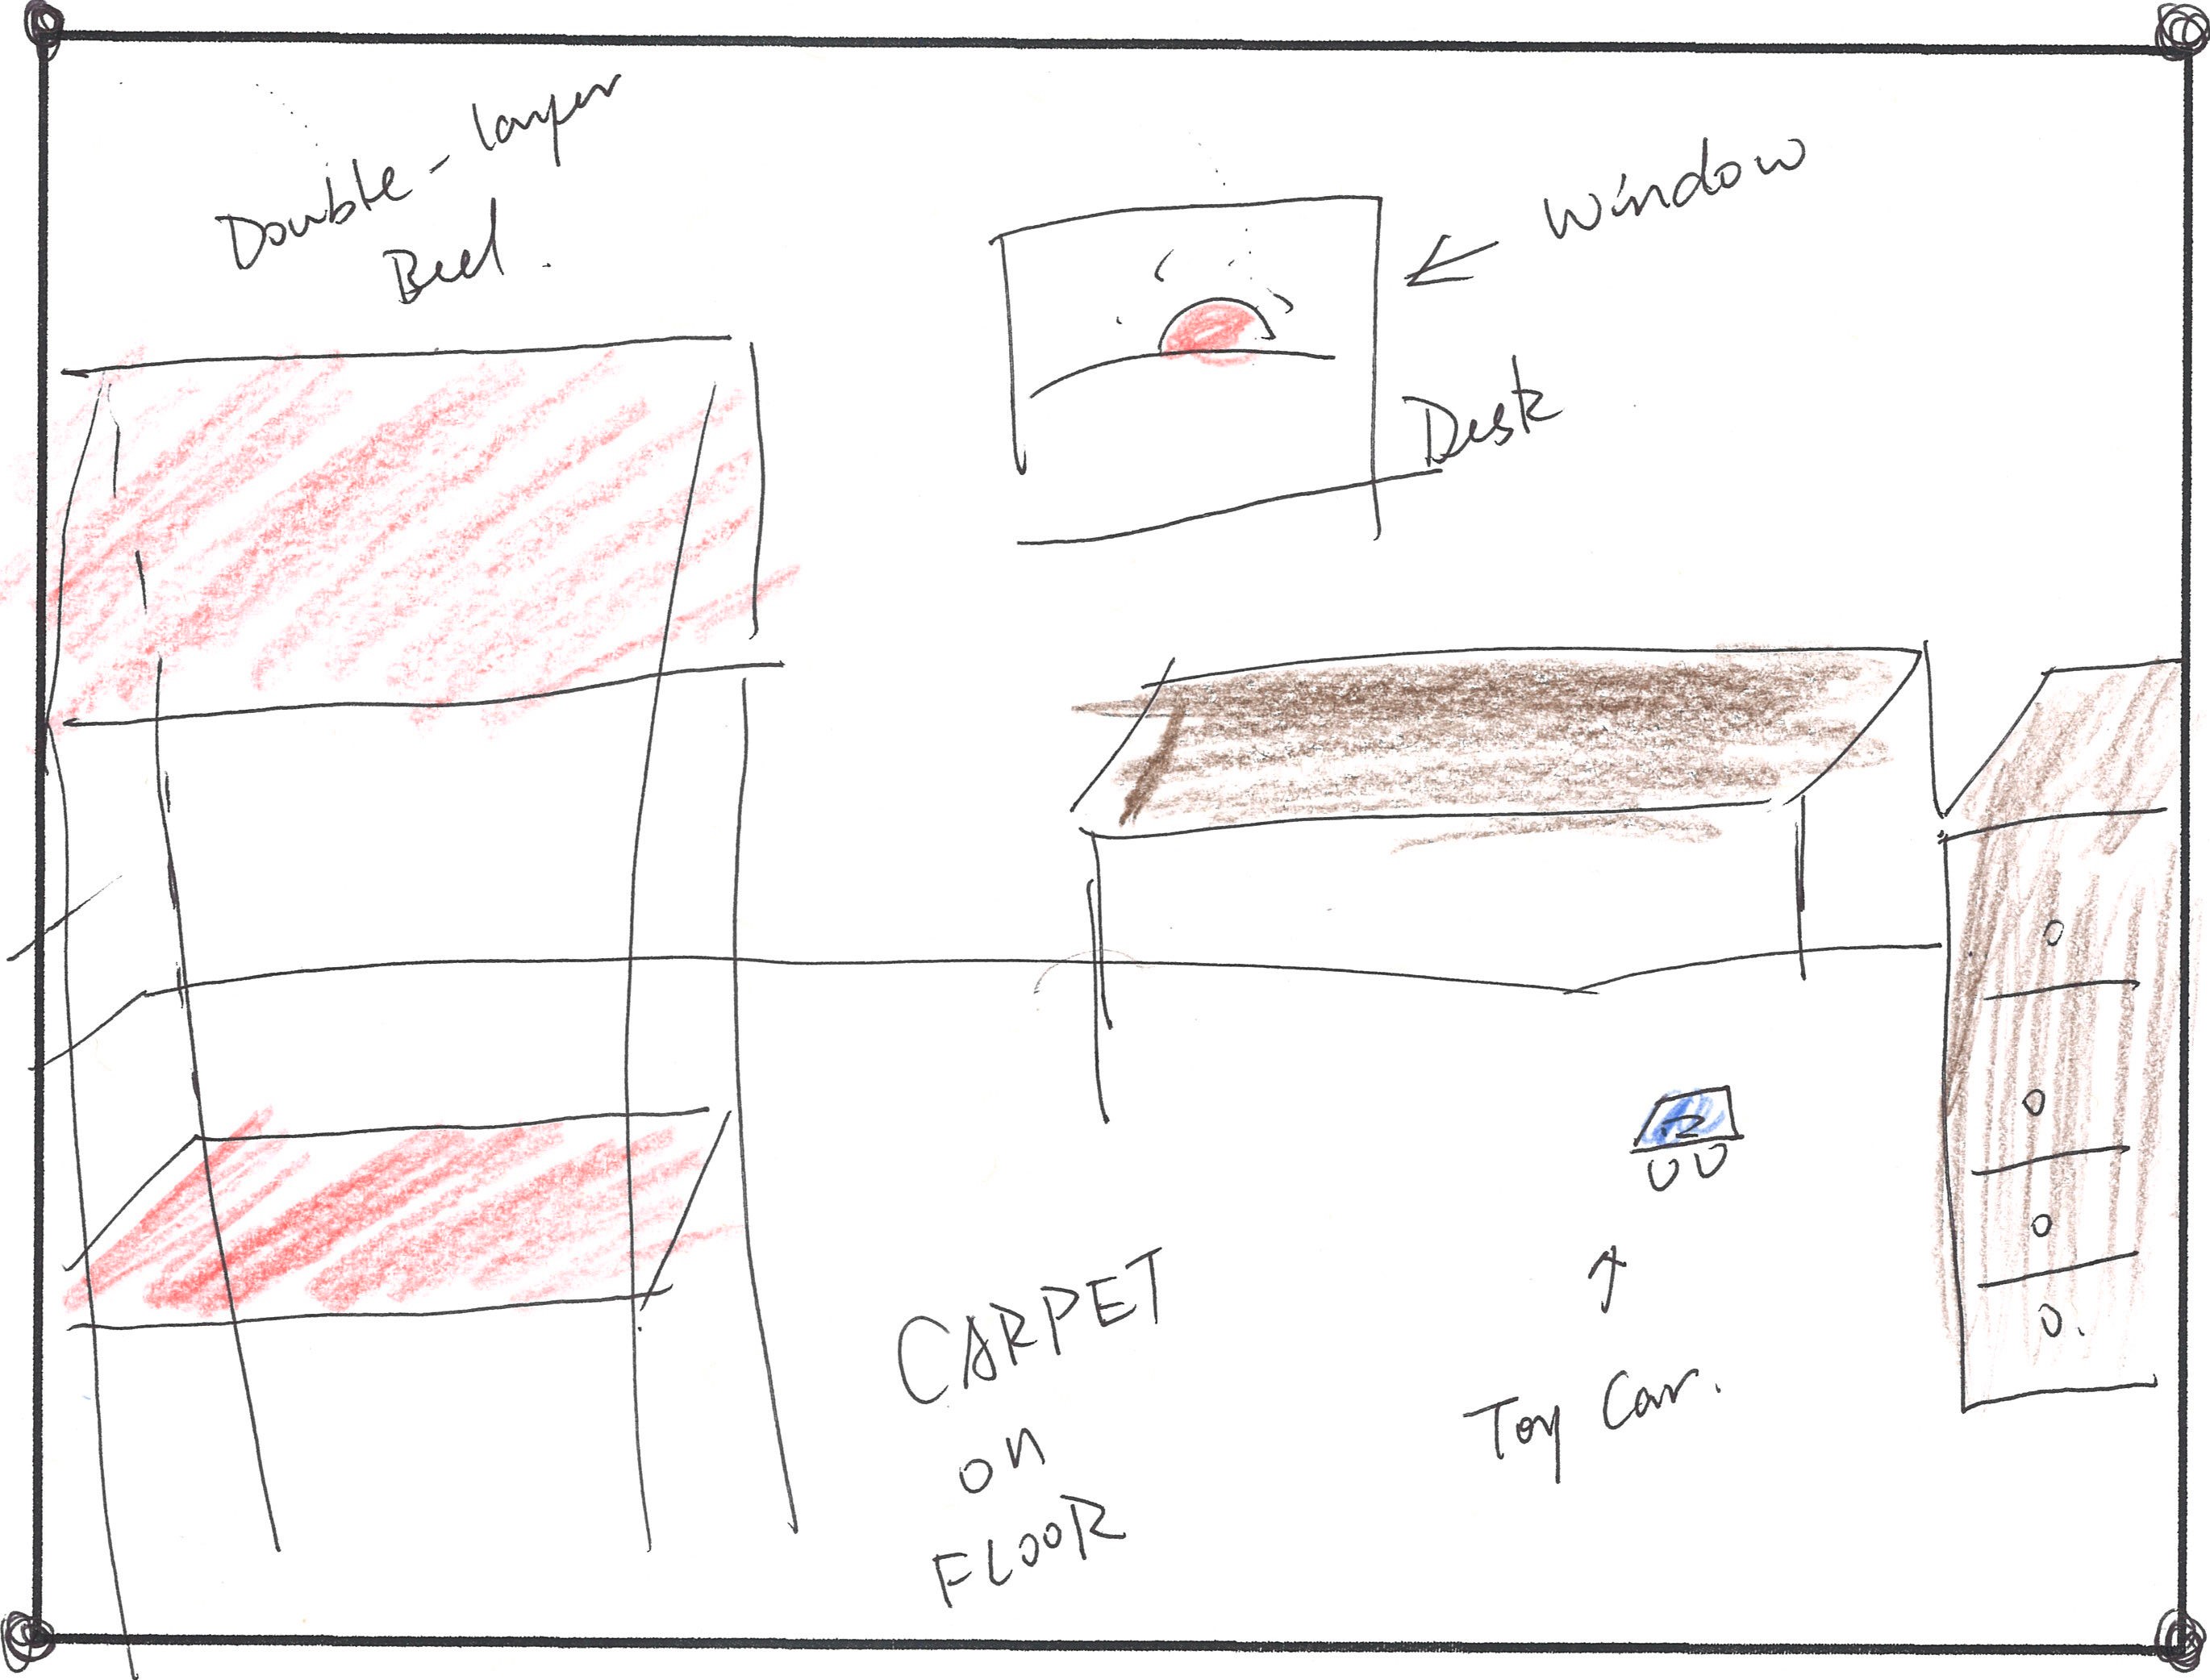 Double-layer
Bed.
Window
Desk
CARPET
on
FLOOR
Toy Car.